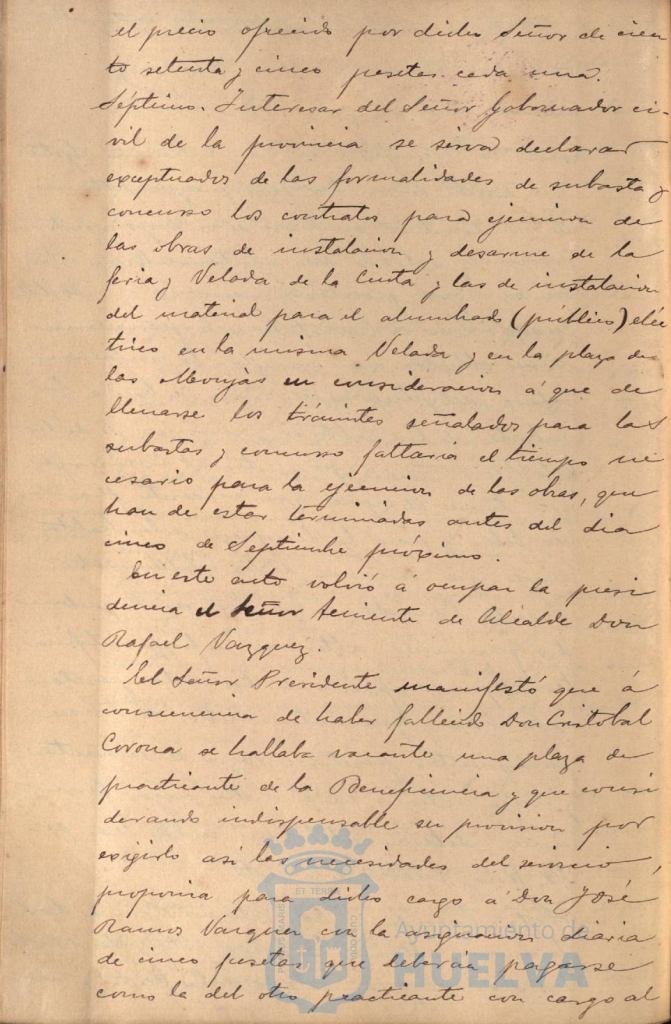 el precio ofrecido por dicho Señor de cien
to setenta y cinco pesetas cada una.
Séptimo. Interesar del Señor Gobernador ci-
vil de la provincia se sirva declarar
exceptuados de las formalidades de subasta y
concurso los contratos para ejecucion de
las obras de instalacion y desarme de la
feria y Velada de la Cinta y las de instalacion
del material para el alumbrado (público) eléc
trico en la misma Velada y en la plaza de
las Monjas en consideracion á que de
llenarse los trámites señalados para las
subastas y concurso faltaria el tiempo ne
cesario para la ejecucion de las obras, que
han de estar terminadas antes del dia
cinco de Septiembre próximo.
En este acto volvió á ocupar la presi
dencia el Señor Teniente de Alcalde Don
Rafael Vazquez.
El Señor Presidente manifestó que á
consecuencia de haber fallecido Don Cristobal
Corona se hallaba vacante una plaza de
practicante de la Beneficencia y que consi
derando indispensable su provision por
exigirlo asi las necesidades del servicio,
proponia para dicho cargo á Don José
Ramos Vazquez con la asignacion diaria
de cinco pesetas, que deberán pagarse
como la del otro practicante con cargo al
Ayuntamiento de
HUELVA